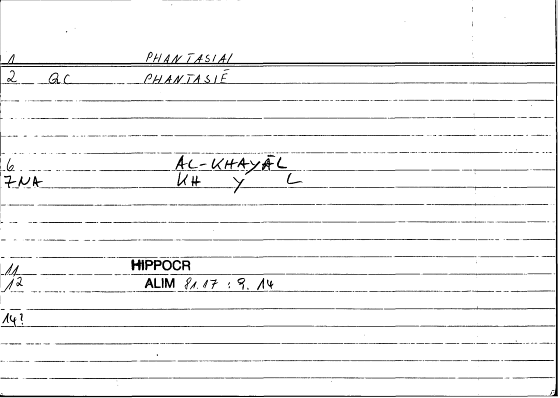 1 PHANTASIAI
2 QC PHANTASIÉ
6 AL-KHAYĀL
7 NA KH Y L
11 HIPPOCR
12 ALIM 81.17 : 9. 14
14?